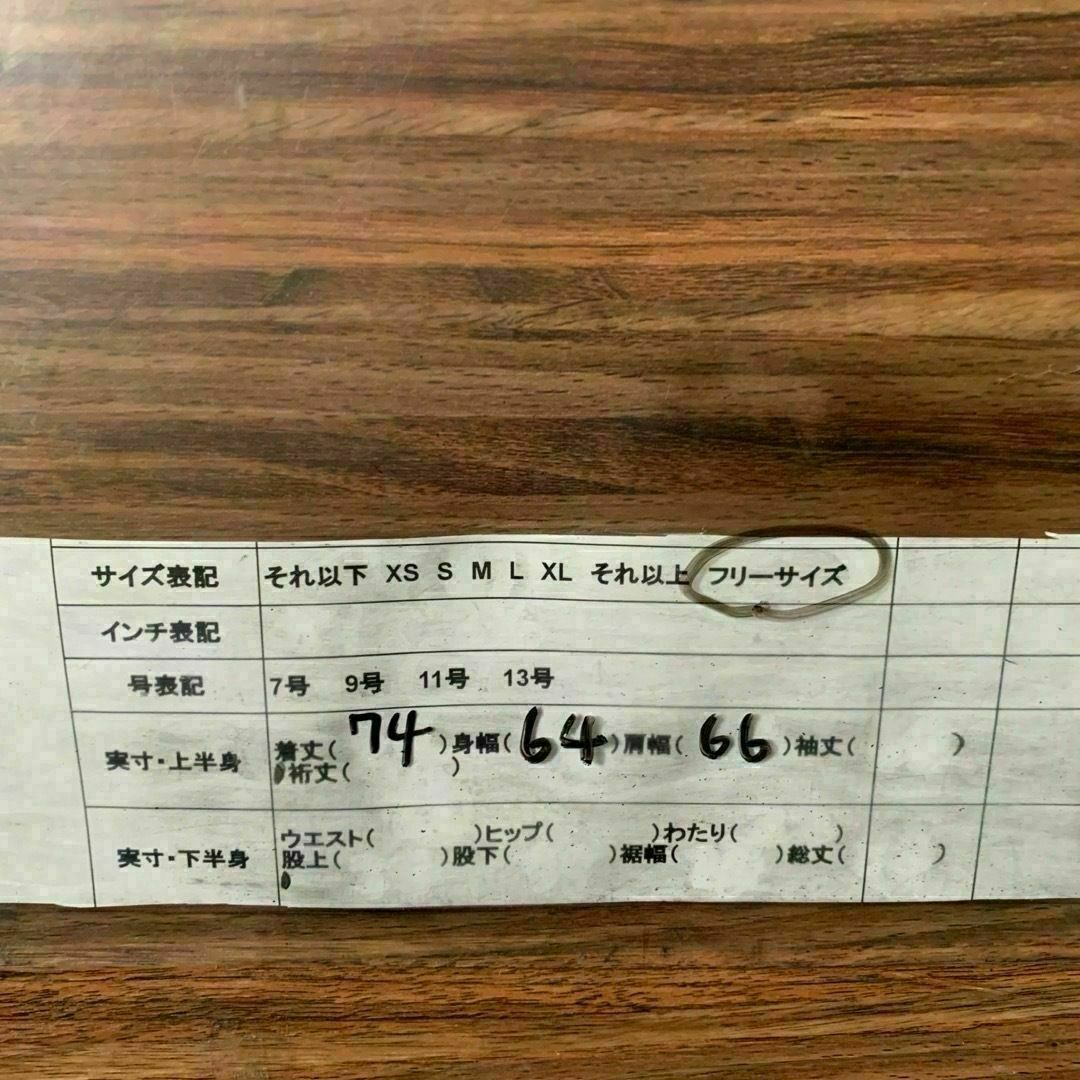 サイズ表記 それ以下 XS S M L XL それ以上 フリーサイズ
インチ表記
号表記 7号 9号 11号 13号
実寸・上半身 着丈( 74 )身幅( 64 )肩幅( 66 )袖丈( )
裄丈( )
実寸・下半身 ウエスト( )ヒップ( )わたり( )
股上( )股下( )裾幅( )総丈( )